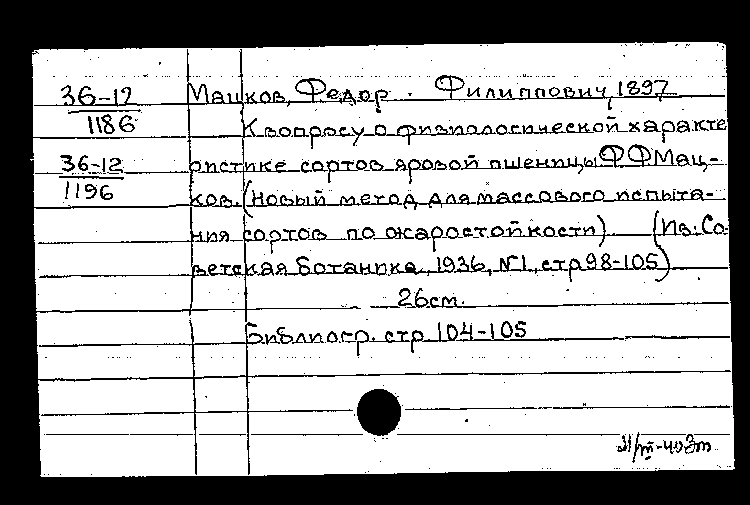 36-12 Мацков, Федор Филиппович, 1897
1186 К вопросу о физиологической характе
36-12 ристике сортов яровой пшеницы Ф Ф Мац-
1196 ков. (Новый метод для массового испыта-
ния сортов по жаростойкости) (Из: Со-
ветская ботаника, 1936, №1, стр 98-105)
26см.
Библиогр. стр 104-105